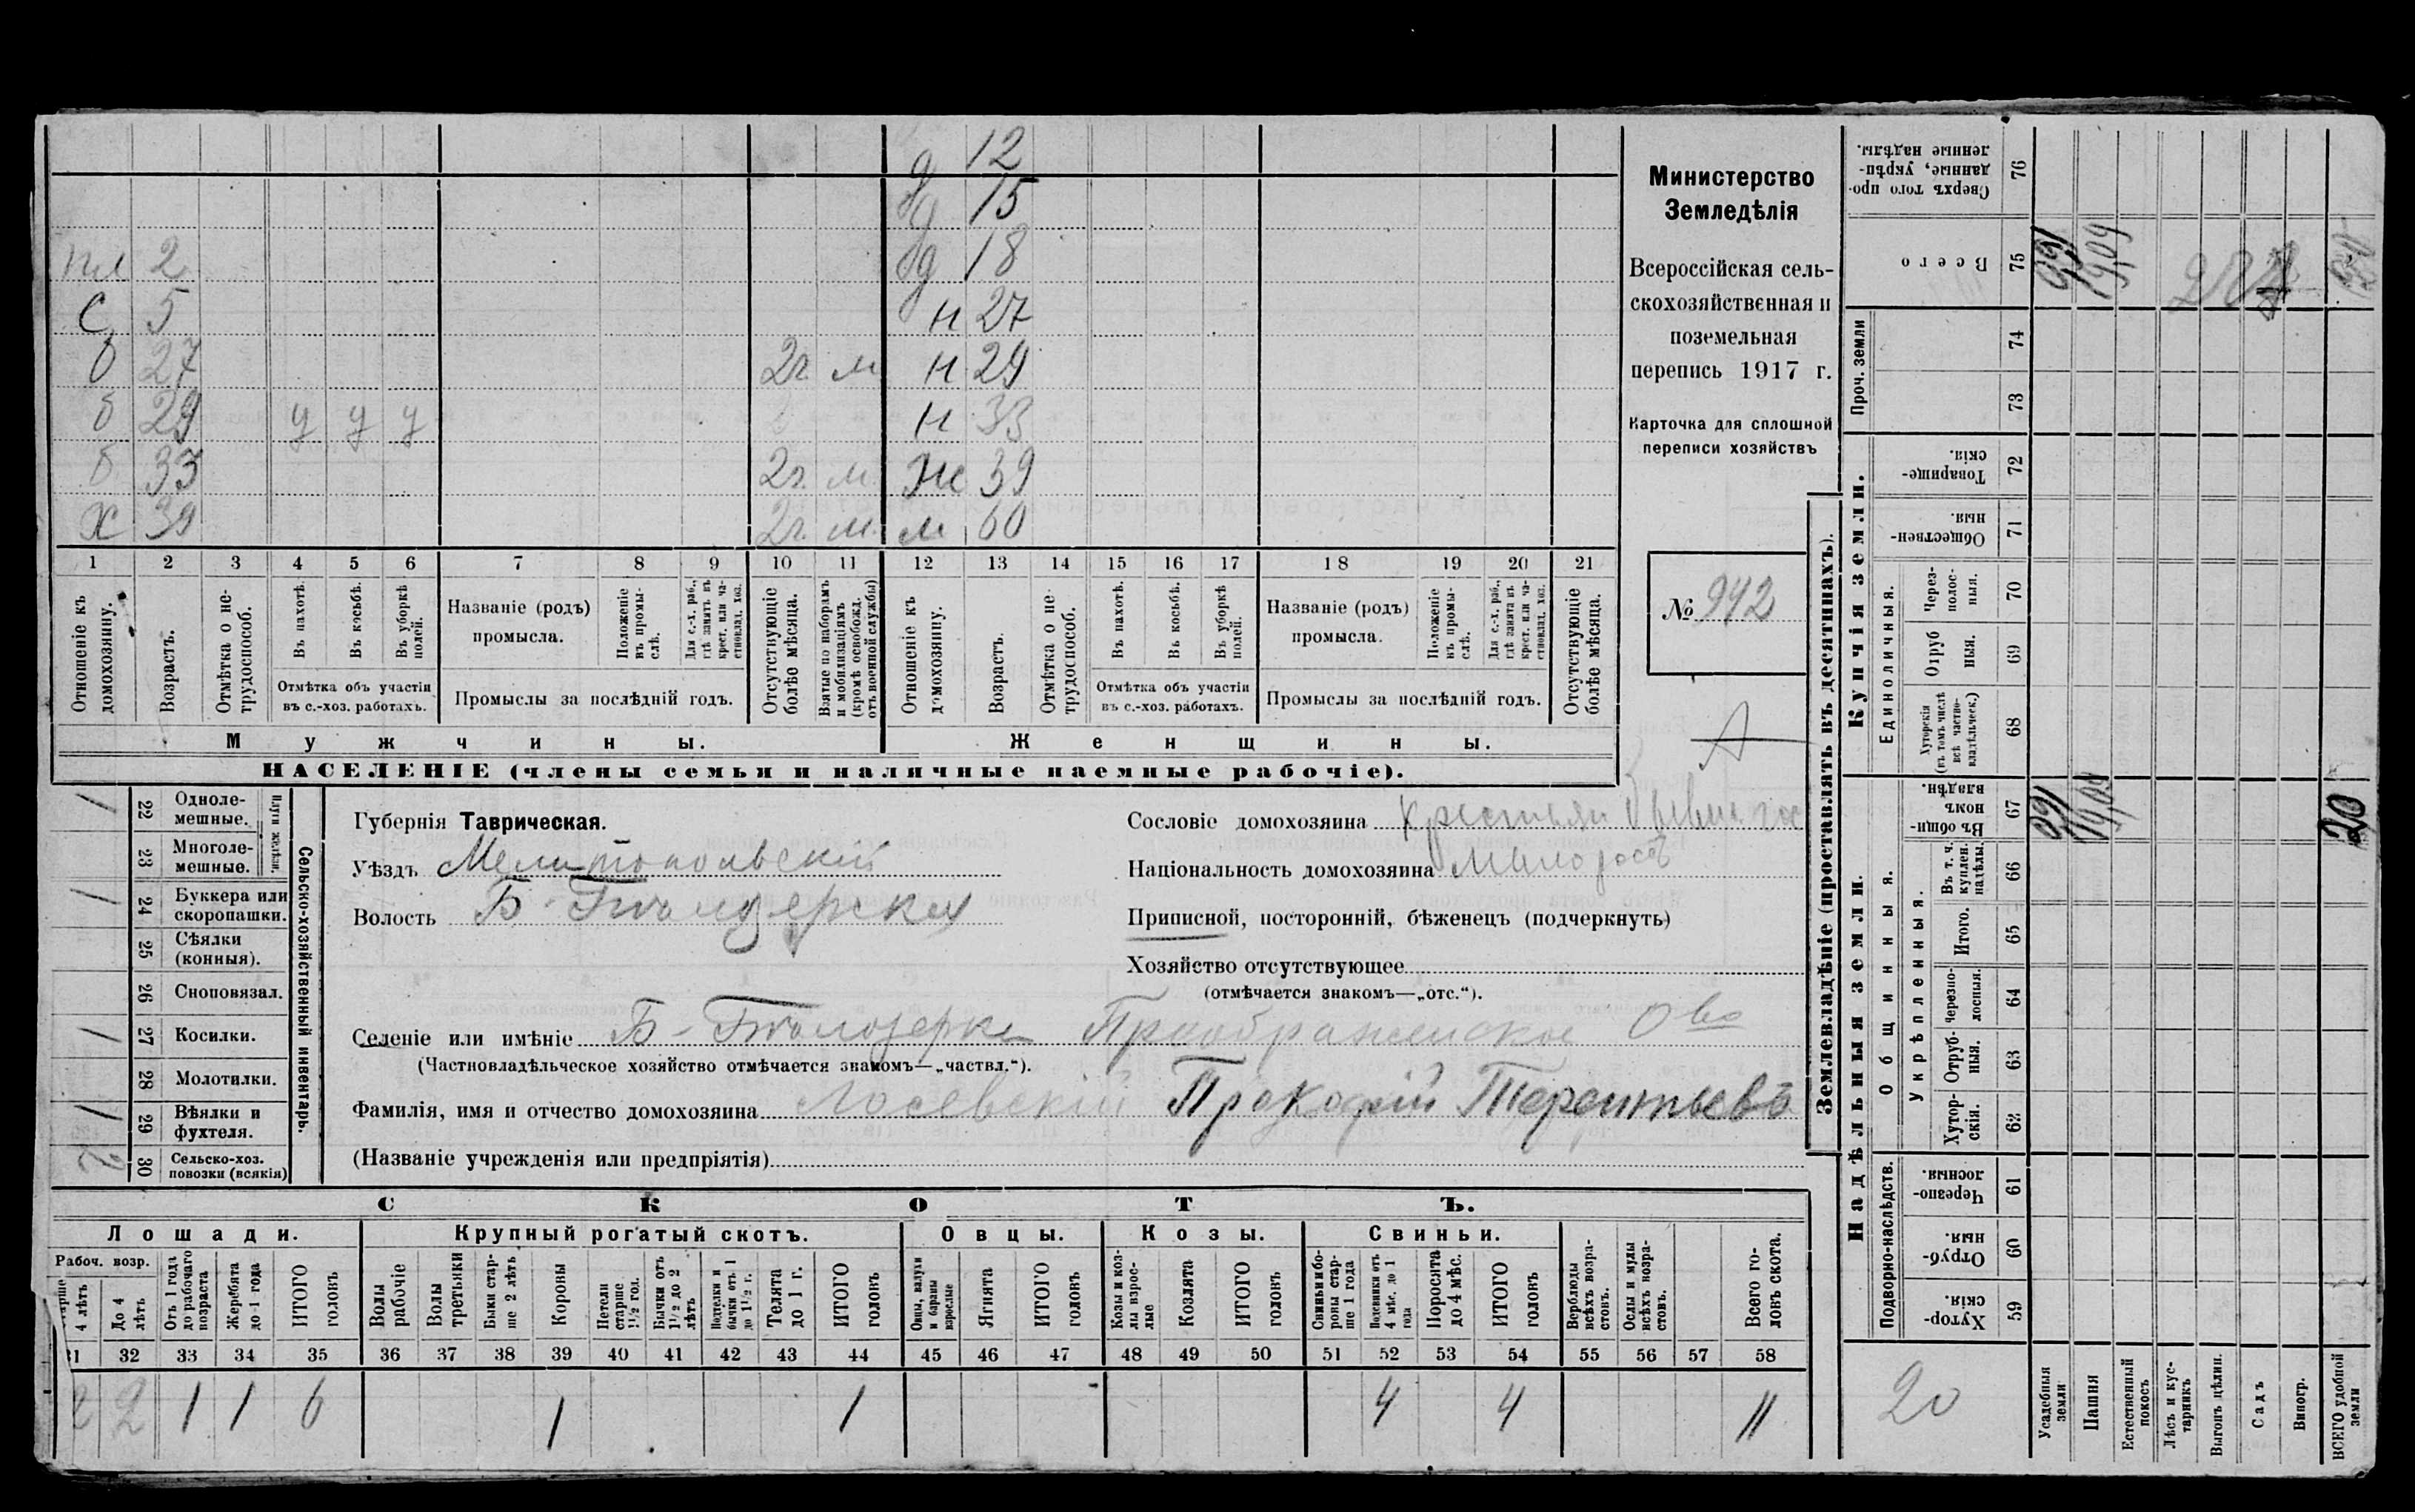 12
15
18
2
С 5 н 27
б 27 2г. м н 29
б 29 у у у н 33
б 33 2г. м. Ж 39
Х 39 2г. м. м 60
1 2 3 4 5 6 7 8 9 10 11 12 13 14 15 16 17 18 19 20 21
Отношеніе къ домохозяину.
Возрастъ.
Отмѣтка о нетрудоспособ.
Въ пахотѣ.
Въ косьбѣ.
Въ уборкѣ полей.
Отмѣтка объ участіи
въ с.-хоз. работахъ.
Названіе (родъ)
промысла.
Положеніе въ промыслѣ.
Для с.-х. раб., гдѣ занятъ въ крест. или частновлад. хоз.
Промыслы за послѣдній годъ.
Отсутствующіе болѣе мѣсяца.
Взятые по наборамъ и мобилизаціямъ (кромѣ освобожд. отъ военной службы)
Отношеніе къ домохозяину.
Возрастъ.
Отмѣтка о нетрудоспособ.
Въ пахотѣ.
Въ косьбѣ.
Въ уборкѣ полей.
Отмѣтка объ участіи
въ с.-хоз. работахъ.
Названіе (родъ)
промысла.
Положеніе въ промыслѣ.
Для с.-х. раб., гдѣ занята въ крест. или частновлад. хоз.
Промыслы за послѣдній годъ.
Отсутствующіе болѣе мѣсяца.
Мужчины. Женщины.
НАСЕЛЕНІЕ (члены семьи и наличные наемные рабочіе).
Министерство
Земледѣлія
Всероссійская сель-
скохозяйственная и
поземельная
перепись 1917 г.
Карточка для сплошной
переписи хозяйствъ
№ 942
А
Сельско-хозяйственный инвентарь.
Плуги желѣзн.
1 22 Одноле-
мешные.
23 Многоле-
мешные.
1 24 Буккера или
скоропашки.
25 Сѣялки
(конныя).
26 Сноповязал.
1 27 Косилки.
28 Молотилки.
1 29 Вѣялки и
фухтеля.
2 30 Сельско-хоз.
повозки (всякія)
Губернія Таврическая.
Уѣздъ Мелитопольскій
Волость Б-Бѣлозерская
Сословіе домохозяина
Національность домохозяина Малоросъ
Приписной, посторонній, бѣженецъ (подчеркнуть)
Хозяйство отсутствующее
(отмѣчается знакомъ—„отс.“).
Селеніе или имѣніе Б-Бѣлозерка Преображенское О-во
(Частновладѣльческое хозяйство отмѣчается знакомъ—„частвл.“).
Фамилія, имя и отчество домохозяина Лосевскій Прокофій Терентьевъ
(Названіе учрежденія или предпріятія)
СКОТЪ.
Лошади. Крупный рогатый скотъ. Овцы. Козы. Свиньи.
Рабоч. возр.
4 лѣтъ
До 4 лѣтъ
Отъ 1 года до рабочаго возраста
Жеребята до 1 года
ИТОГО головъ
Волы рабочіе
Волы третьяки
Быки старше 2 лѣтъ
Коровы
Нетели старше 1½ год.
Бычки отъ 1½ до 2 лѣтъ
Подтелки и бычки отъ 1 до 1½ г.
Телята до 1 г.
ИТОГО головъ
Овцы, валухи и бараны взрослые
Ягнята
ИТОГО головъ
Козы и козлы взрослые
Козлята
ИТОГО головъ
Свиньи и бороны старше 1 года
Подсвинки отъ 4 мѣс. до 1 года
Поросята до 4 мѣс.
ИТОГО головъ
Верблюды всѣхъ возрастовъ.
Ослы и мулы всѣхъ возрастовъ.
Всего головъ скота.
31 32 33 34 35 36 37 38 39 40 41 42 43 44 45 46 47 48 49 50 51 52 53 54 55 56 57 58
2 2 1 1 6 1 1 4 4 11
Землевладѣніе (проставлять въ десятинахъ).
Надѣльныя земли. Купчія земли. Проч. земли
Подворно-наслѣдств. Общинныя. Укрѣпленныя. Единоличныя.
Хуторскія 59
Отрубныя. 60
Черезполосныя. 61
Хуторскія. 62
Отрубныя. 63
Черезполосныя. 64
Итого. 65
Въ т. ч. куплен. надѣлы. 66
Въ общинномъ владѣн. 67
Хуторскія (въ томъ числѣ всѣ частновладѣльческ.) 68
Отрубныя. 69
Черезполосныя. 70
Общественныя. 71
Товарищескія. 72
73
74
Всего 75
Сверхъ того проданные, укрѣпленные надѣлы. 76
20
Усадебныя земли
Пашня 19,09 19,09
Естественный покосъ
Лѣсъ и кустарникъ
Выгонъ цѣлин.
Садъ
Виногр.
ВСЕГО удобной земли 20